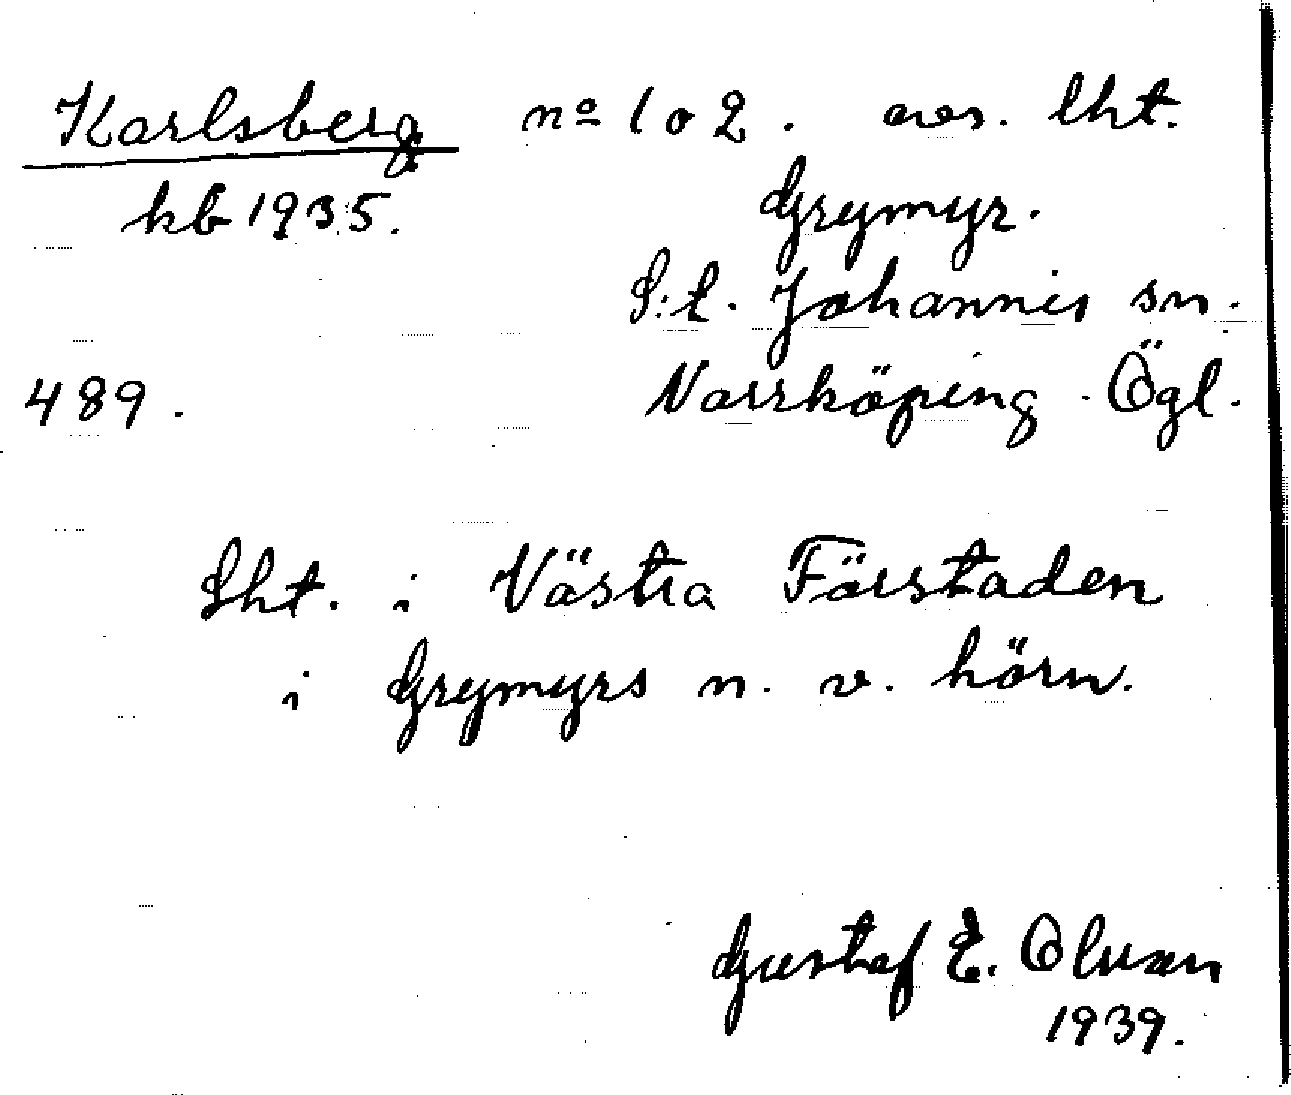 Karlsberg nº 1 o 2. avs. lht.
kb 1935. Grymyr.
S:t. Johannis sn.
489. Norrköping. Ögl.
Lht. i Västra Förstaden
i Grymyrs n. v. hörn.
Gustaf E. Olsson
1939.